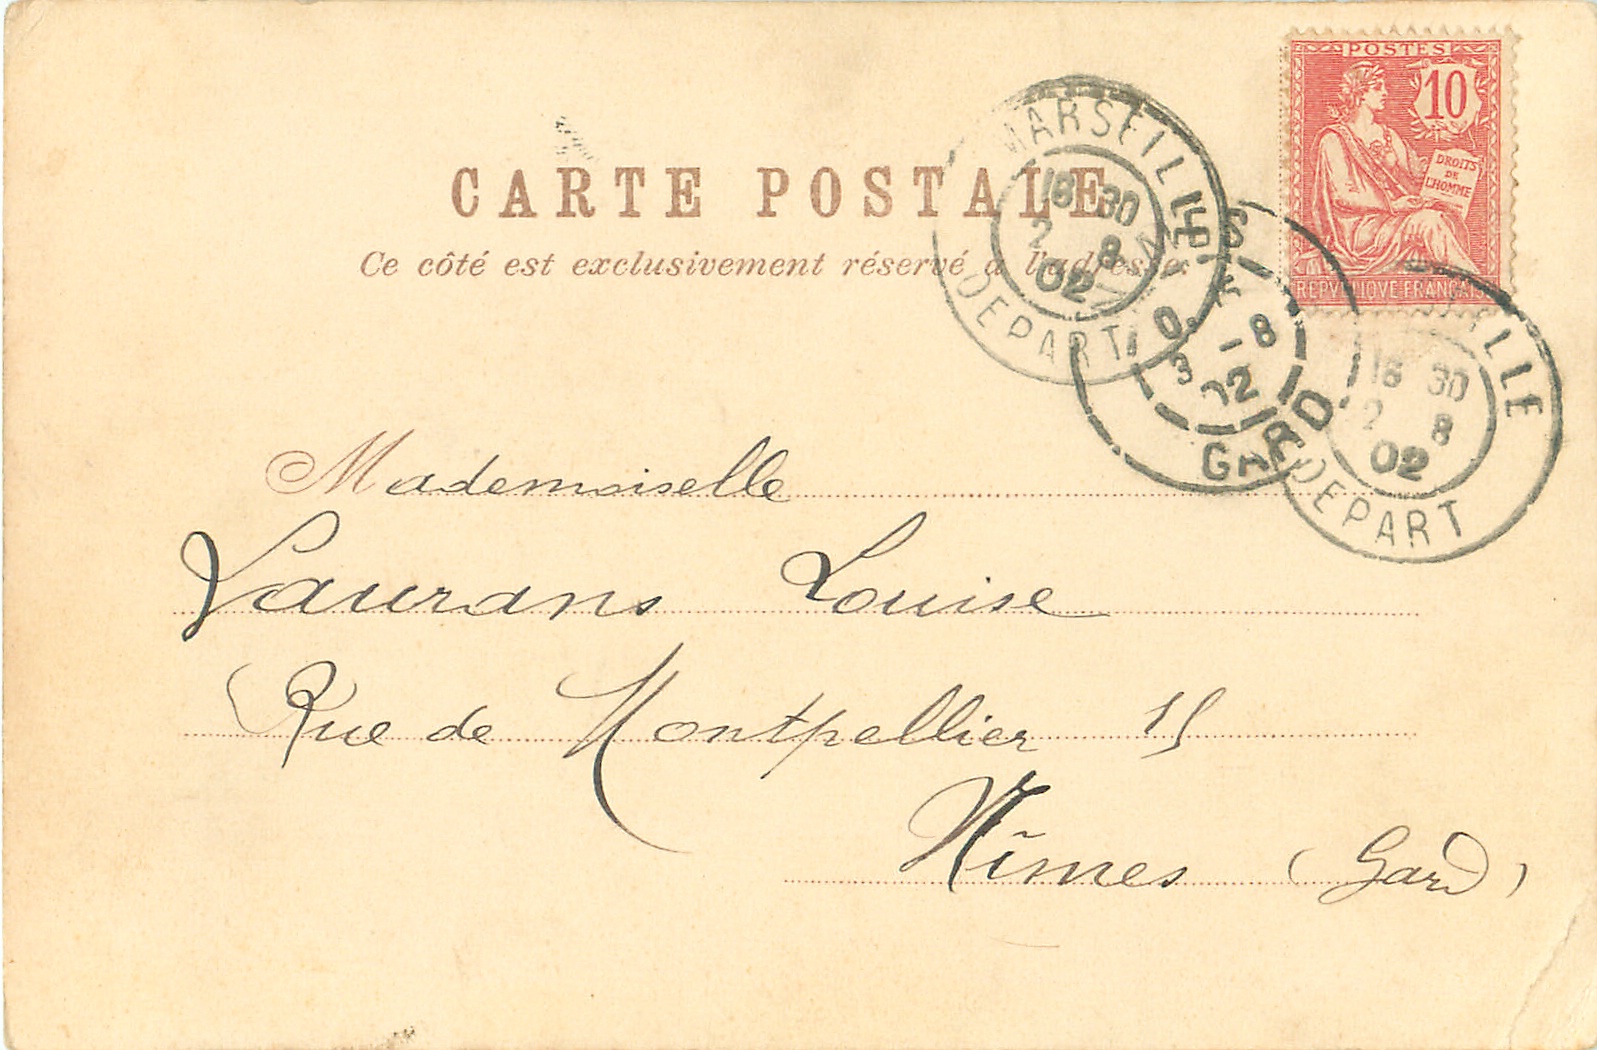 CARTE POSTALE
Ce côté est exclusivement réservé à l'adresse.
POSTES
10
DROITS
DE
L'HOMME
REPVBLIQVE FRANÇAISE
MARSEILLE
18 30
2 8
02
DEPART
8
3 02
GARD
18 30
2 8
02
DEPART
Mademoiselle
Laurans Louise
Rue de Montpellier 15
Nîmes (Gard)